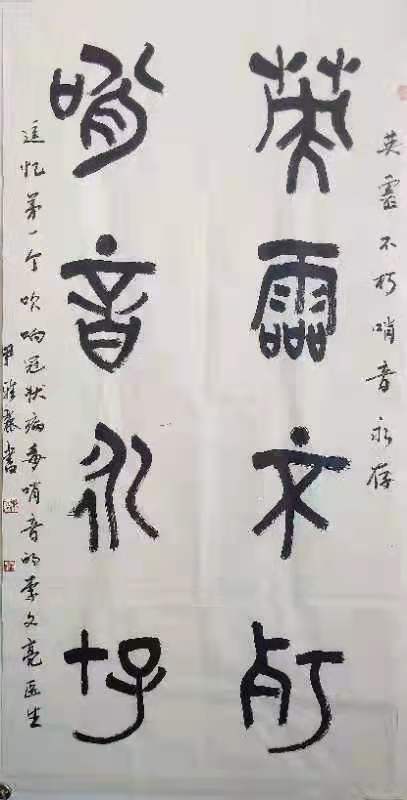 英靈不朽哨音永存
英靈不朽
哨音永存
追忆第一个吹响冠状病毒哨音的李文亮医生
书